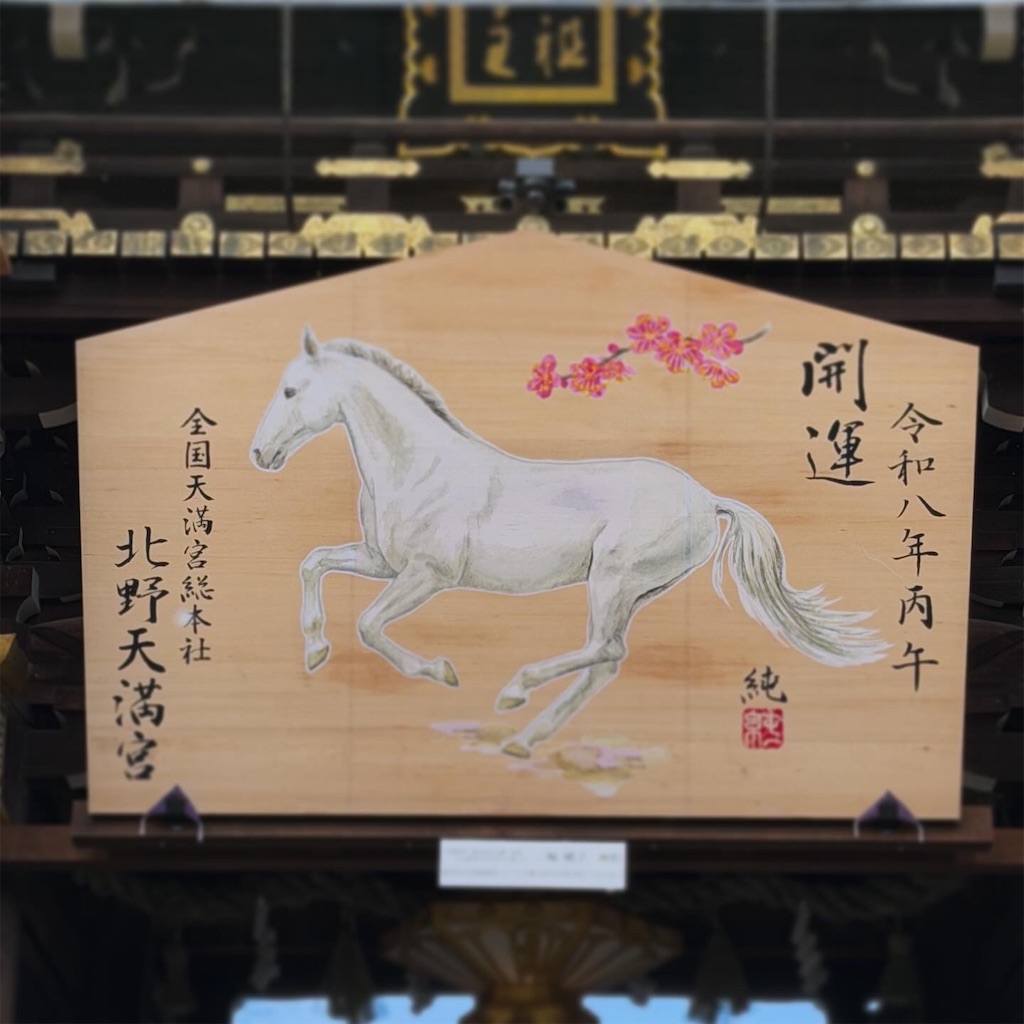 令和八年丙午
開運
純
全国天満宮総本社
北野天満宮